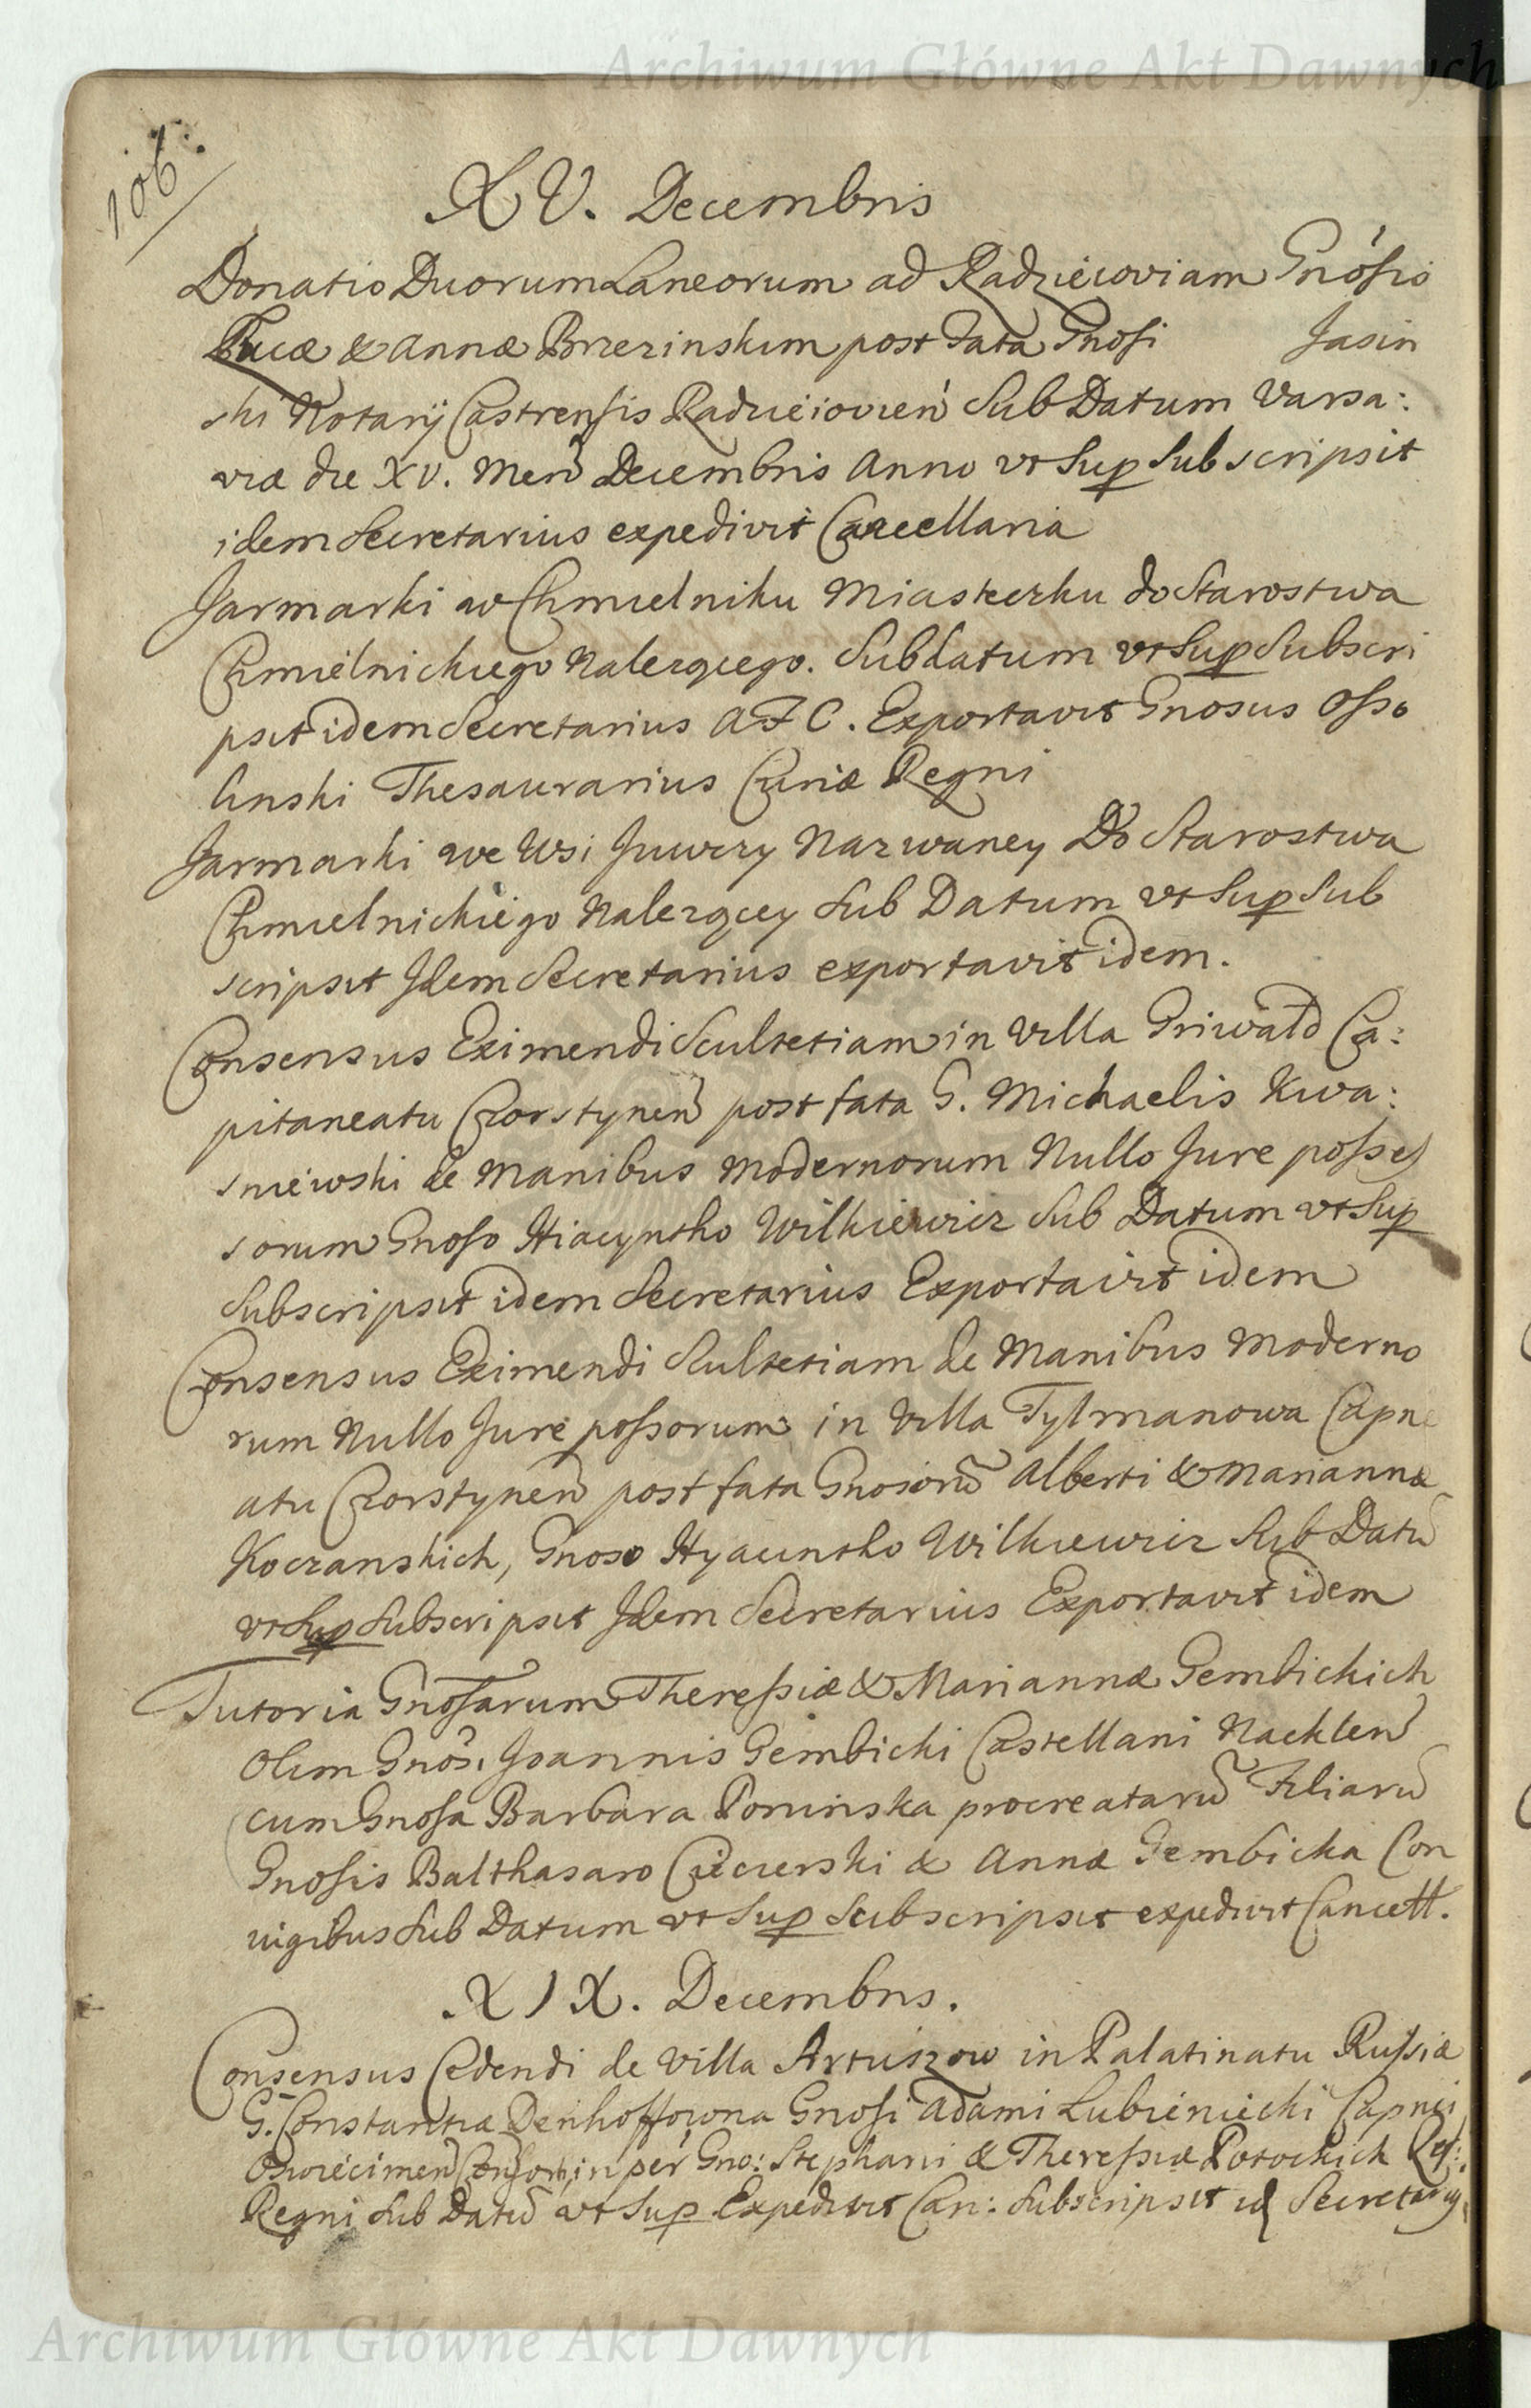 Archiwum Główne Akt Dawnych
106.
XV. Decembris
Donatio Duorum Laneorum ad Radziejoviam Gnosis
Lucæ & Annæ Brzezinskim post Fata Gnosi Jasin
ski Notarij Castrensis Radziejovien Sub Datum Varsa:
viæ die XV. Men Decembris Anno vt Sup Subscripsit
idem Secretarius expedivit Cancellaria
Jarmarki w Chmielniku Miasteczku do Starostwa
Chmielnickiego Nalezącego. Sub datum vt Sup Subscri
psit idem Secretarius A F C. Exportavit Gnosus Osso
linski Thesaurarius Curiæ Regni
Jarmarki we Wsi Juwczy Nazwaney Do Starostwa
Chmielnickiego Nalezącey Sub Datum vt Sup Sub
scripsit Idem Secretarius exportavit idem.
Consensus Eximendi Scultetiam in Villa Griwald Ca:
pitaneatu Czorstynen post fata G. Michaelis Kwa:
sniewski de Manibus Modernorum Nullo Jure posses
sorum Gnoso Hiacyntho Wilkiewicz Sub Datum vt Sup
Subscripsit idem Secretarius Exportavit idem
Consensus Eximendi Scultetiam de Manibus Moderno
rum Nullo Jure possorum in Villa Tylmanowa Capne
atu Czorstynen post fata Gnosorū Alberti & Mariannæ
Koczanskich, Gnoso Hyacintho Wilkiewicz Sub Datū
vt Sup Subscripsit Idem Secretarius Exportavit idem
Tutoria Gnosarum Theressiæ & Mariannæ Gembickich
Olim Gnosi Joannis Gembicki Castellani Naklen
cum Gnosa Barbara Poninska procreatarū Filiarū
Gnosis Balthasaro Ciecierski & Annæ Gembicka Con
iugibus Sub Datum vt Sup Subscripsit expedivit Cancell.
XIX. Decembris.
Consensus Cedendi de Villa Artuszow in Palatinatu Russiæ
G. Constantiæ Denhoffowna Gnosi Adami Lubieniecki Capnei
Oswiecimen Consorti, in per Gno: Stephani & Theressiæ Potockich Ref:
Regni Sub Datū vt Sup Expedivit Can: Subscripsit id Secretarius
Archiwum Główne Akt Dawnych